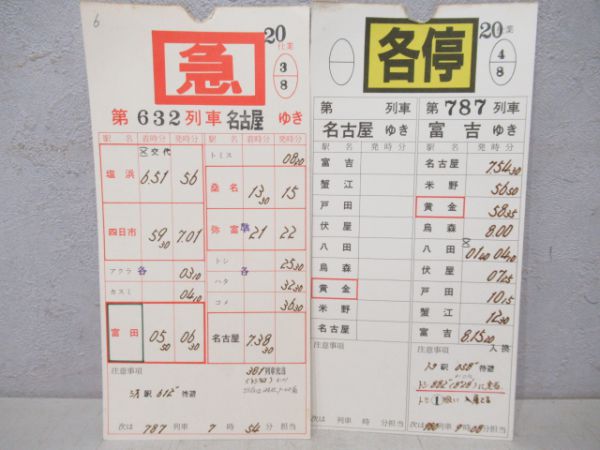 6
20
仕業
3
8
急
第 632 列車 名古屋 ゆき
駅名 着時分 発時分
交代
塩浜 6.51 56
四日市 59 30 7.01
アクラ 各 03 10
カスミ 04 10
富田 05 50 06 30
駅名 着時分 発時分
トミス 08 20
桑名 13 30 15
弥富 21 22
トシ 25 30
ハタ 各 32 30
コメ 36 30
名古屋 7.38 30
注意事項
381列車充当
駅 612 待避
次は 787 列車 7 時 54 分担当
20
仕業
4
8
各停
第 列車
名古屋 ゆき
駅名 発時分
富吉
蟹江
戸田
伏屋
八田
烏森
黄金
米野
名古屋
注意事項
第 787 列車
富吉 ゆき
駅名 発時分
名古屋 7.54 30
米野 56 50
黄金 58 35
烏森 8.00
八田 01 40 04 20
伏屋 07 25
戸田 10 15
蟹江 12 30
富吉 8.15 00
注意事項 入換
駅 058 待避
次は 列車 時 分担当
次は 列車 9 時 08 分担当